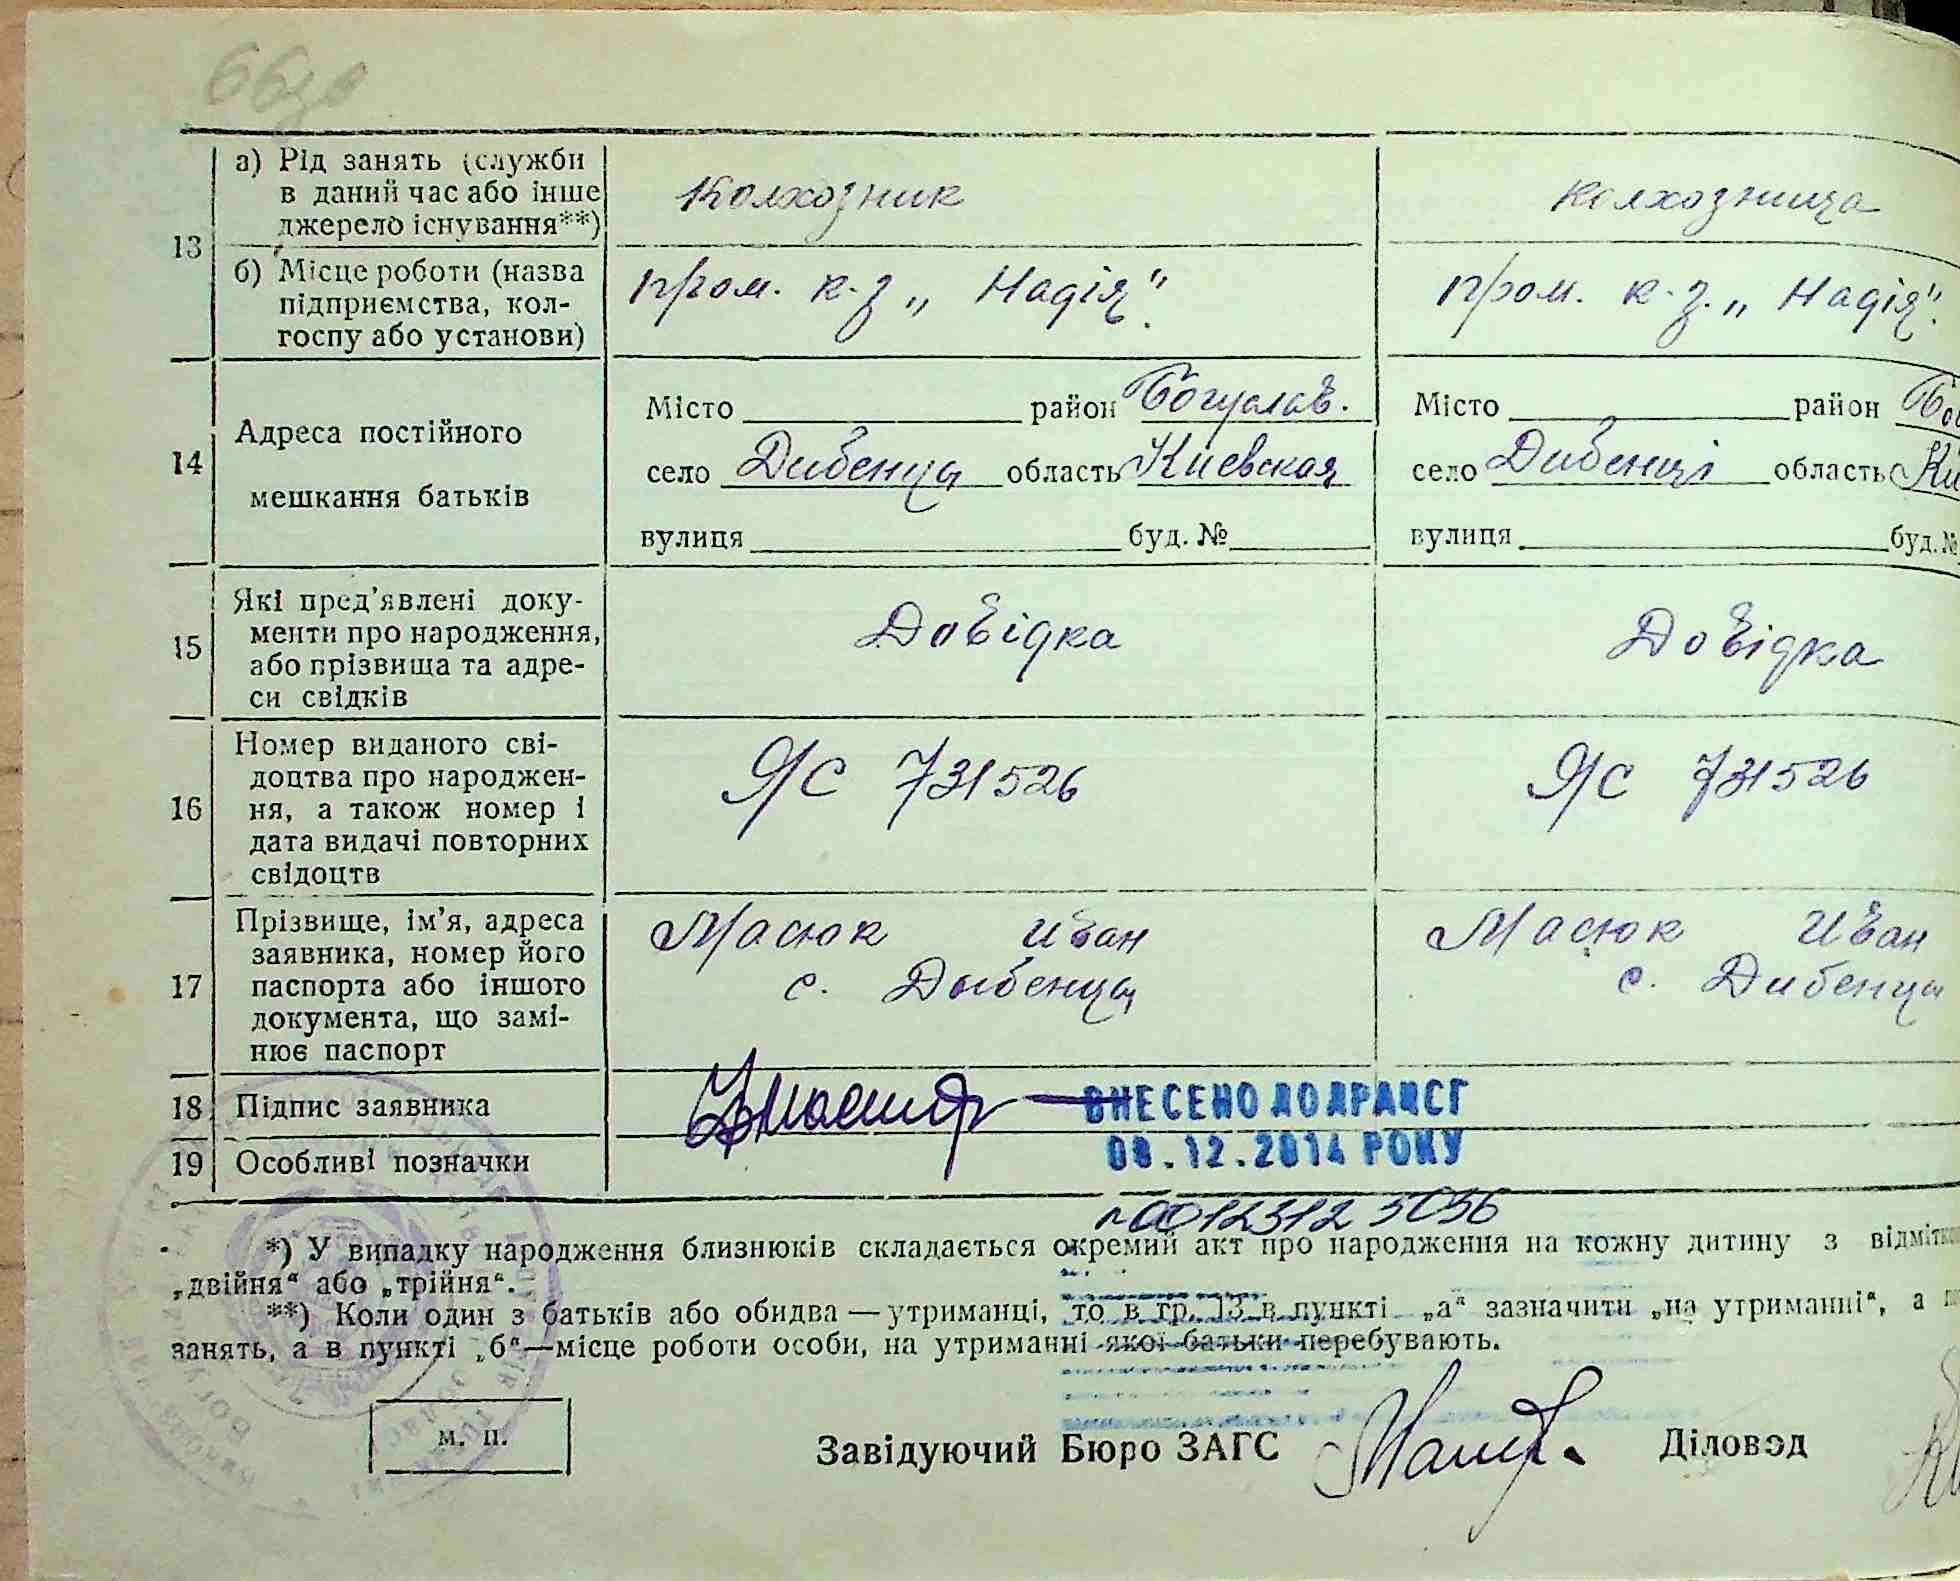 13
а) Рід занять (служби
в даний час або інше
джерело існування**)
Колхозник
колхозница
б) Місце роботи (назва
підприємства, кол-
госпу або установи)
пром. к-з „ Надія".
пром. к-з. „ Надія".
14
Адреса постійного
мешкання батьків
Місто район Богуслав.
село Дибенцы область Киевская
вулиця буд. №
Місто район
село Дибенці область
вулиця буд. №
15
Які пред’явлені доку-
менти про народження,
або прізвища та адре-
си свідків
Довідка
Довідка
16
Номер виданого сві-
доцтва про народжен-
ня, а також номер і
дата видачі повторних
свідоцтв
ЯС 731526
ЯС 731526
17
Прізвище, ім’я, адреса
заявника, номер його
паспорта або іншого
документа, що замі-
нює паспорт
Масюк Иван
с. Дыбенцы
Масюк Иван
с. Дибенцы
18 Підпис заявника
ВНЕСЕНО ДО ДРАЦСГ
19 Особливі позначки
08.12.2014 РОКУ
00123123036
*) У випадку народження близнюків складається окремий акт про народження на кожну дитину з
„двійня“ або „трійня“.
**) Коли один з батьків або обидва — утриманці, то в гр. 13 в пункті „а“ зазначити „на утриманні“, а
занять, а в пункті „б“—місце роботи особи, на утриманні якої батьки перебувають.
м. п.
Завідуючий Бюро ЗАГС
Діловод